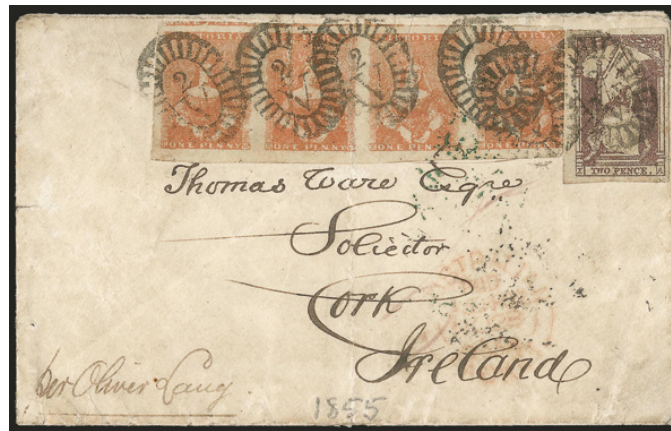 ONE PENNY ONE PENNY ONE PENNY ONE PENNY
TWO PENCE.
Thomas Ware Esqre
Solicitor
Cork
Ireland
per Oliver Lang
1855